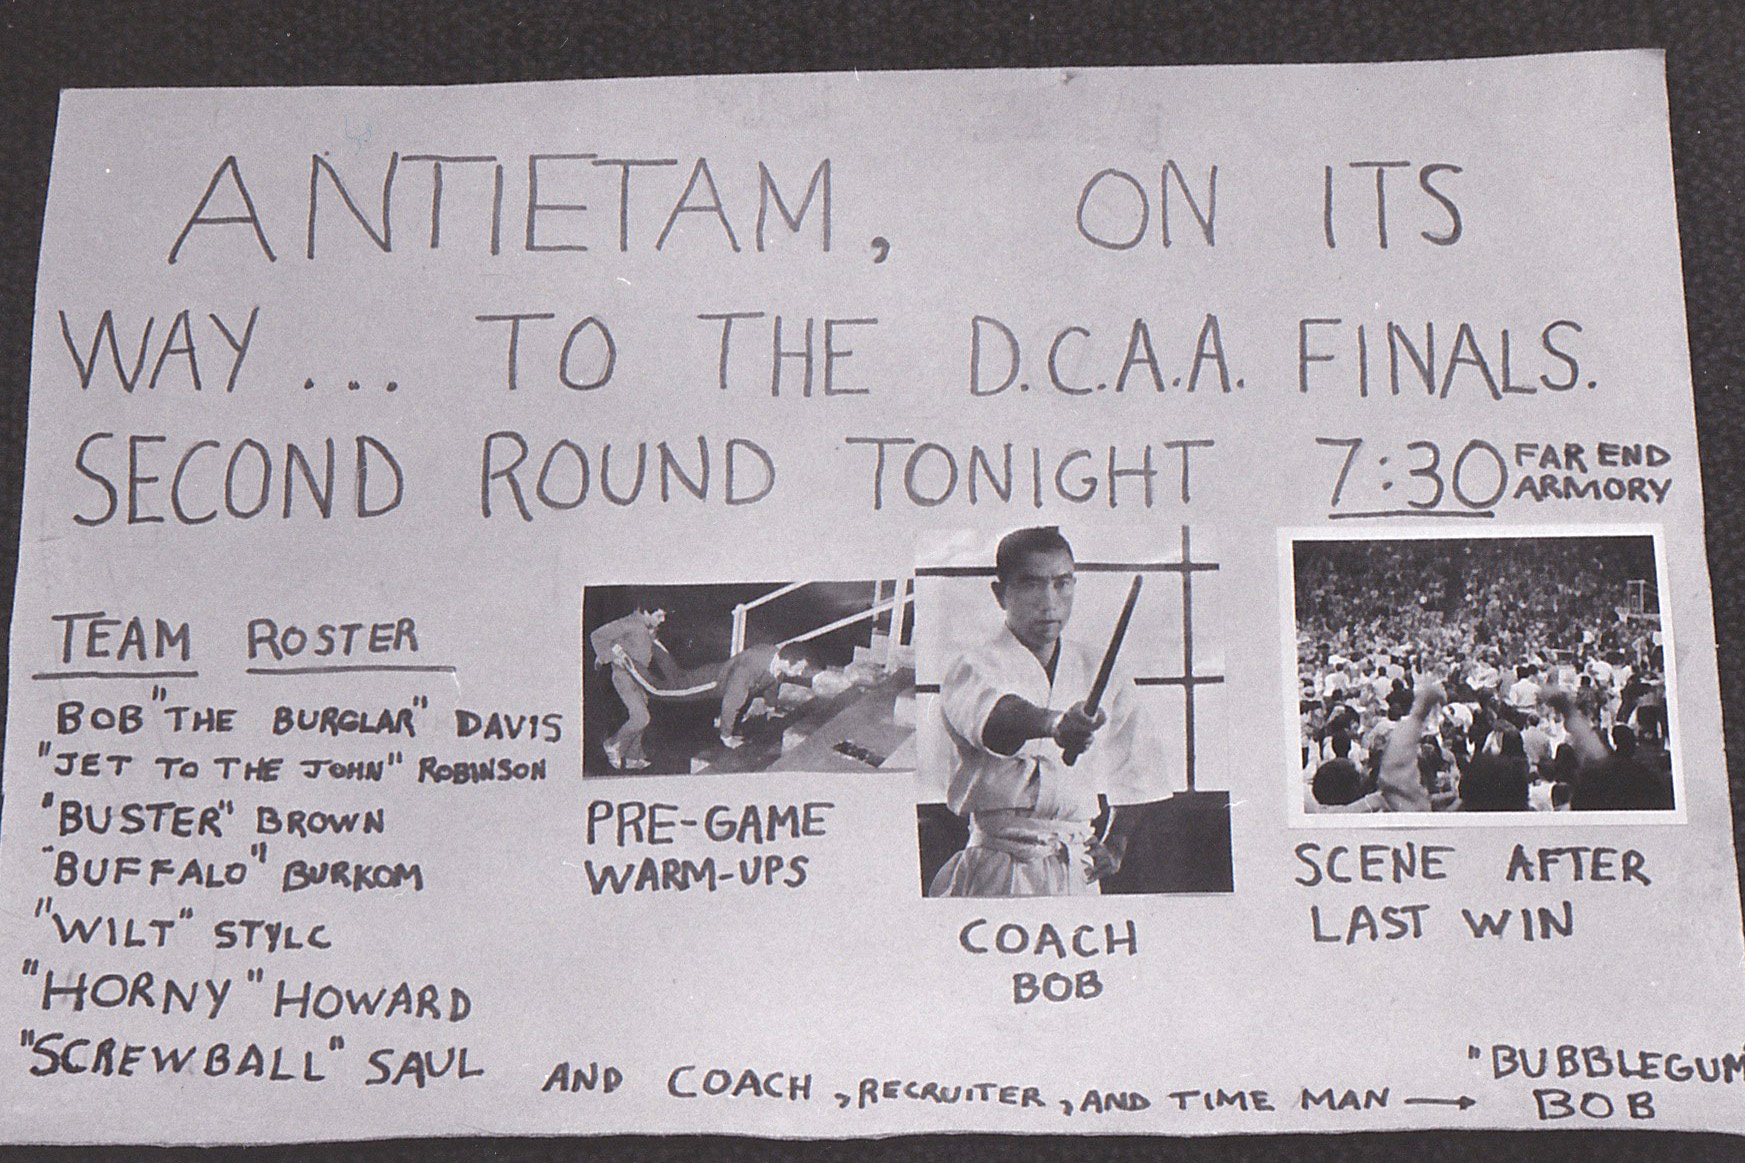 ANTIETAM, ON ITS
WAY... TO THE D.C.A.A. FINALS.
SECOND ROUND TONIGHT 7:30 FAR END
ARMORY
TEAM ROSTER
BOB "THE BURGLAR" DAVIS
"JET TO THE JOHN" ROBINSON
"BUSTER" BROWN
"BUFFALO" BURKOM
"WILT" STYLC
"HORNY" HOWARD
"SCREWBALL" SAUL
PRE-GAME
WARM-UPS
COACH
BOB
SCENE AFTER
LAST WIN
AND COACH, RECRUITER, AND TIME MAN → "BUBBLEGUM
BOB